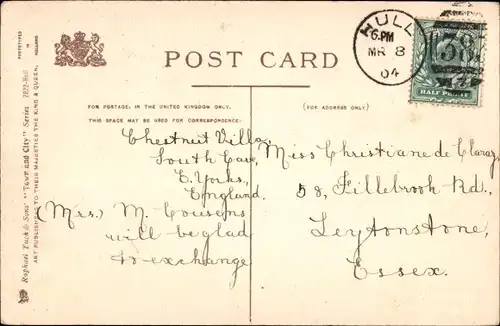 POST CARD
HULL
6.PM
MR 8
04
383
HALF PENNY
PHOTOTYPED IN HOLLAND
Raphael Tuck & Sons' "Town and City" Series
ART PUBLISHERS TO THEIR MAJESTIES THE KING & QUEEN.
FOR POSTAGE, IN THE UNITED KINGDOM ONLY.
THIS SPACE MAY BE USED FOR CORRESPONDENCE:
(FOR ADDRESS ONLY)
Chestnut Villa,
South Cave,
E. Yorks,
England.
(Mrs.) M. Cousens
will be glad
to exchange
Miss Christiane de Claray,
58, Fillebrook Rd.,
Leytonstone,
Essex.